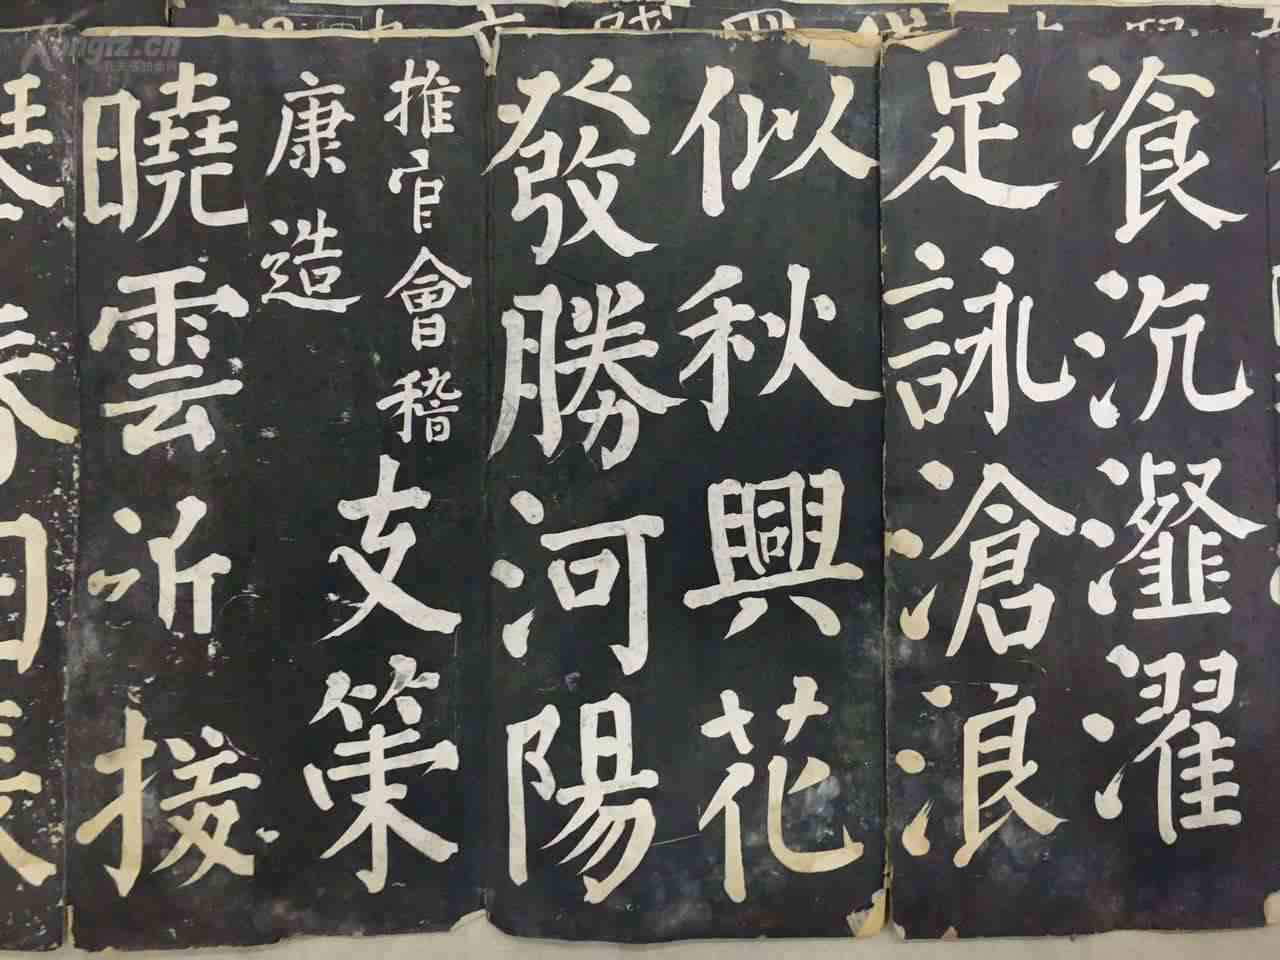 飡沆瀣濯
足詠滄浪
似秋興花
發勝河陽
推官會稽
康造
支策
曉雲近接
琴春日長